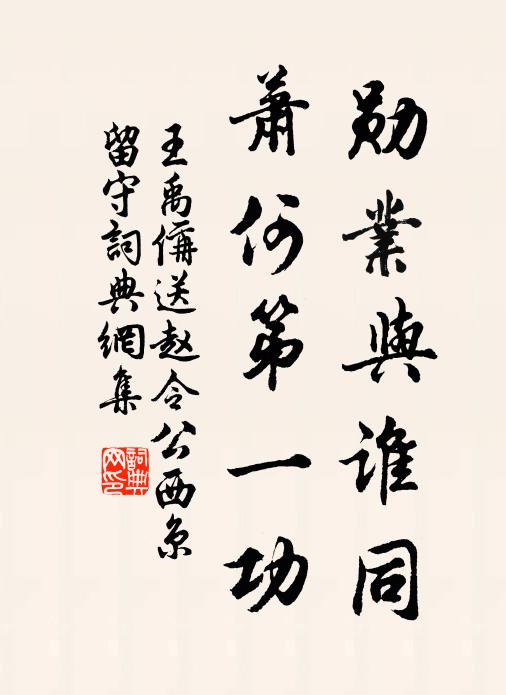 勛業與誰同
蕭何第一功
王禹偁送赵令公西京
留守詞典網集
詞典网印